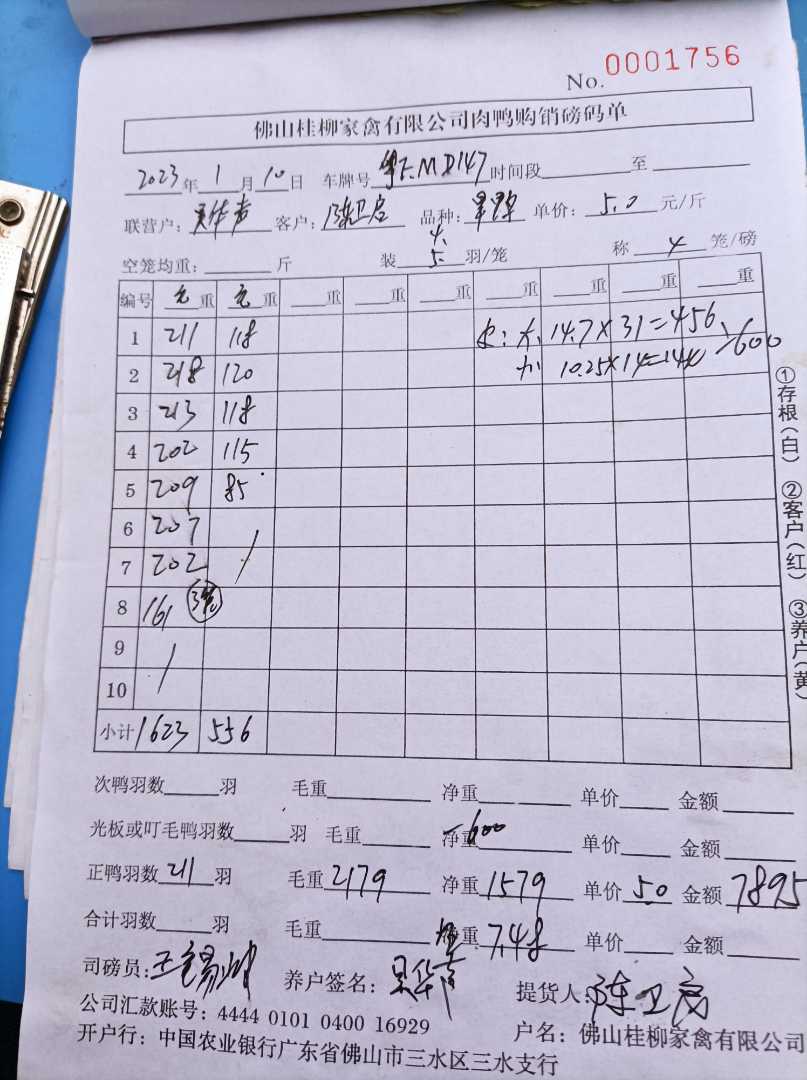 No. 0001756
佛山桂柳家禽有限公司肉鸭购销磅码单
2023年 1月 10日 车牌号 粤F.MD147 时间段 至
联营户: 客户: 陈卫启 品种: 单价: 5.0 元/斤
空笼均重: 斤 装 4. 5. 羽/笼 称 4 笼/磅
编号 毛重 毛重 重 重 重 重 重 重 重
1 211 118 皮: 大 14.7×31=456
2 218 120 小 10.25×14=144 600
3 213 118
4 202 115
5 209 85
6 207
7 202 /
8 161 3笼
9 /
10
小计 1623 556
次鸭羽数 羽 毛重 净重 单价 金额
光板或叮毛鸭羽数 羽 毛重 净重 -600 单价 金额
正鸭羽数 211 羽 毛重 2179 净重 1579 单价 5.0 金额 7895
合计羽数 羽 毛重 均重 7.48 单价 金额
司磅员: 养户签名: 提货人: 陈卫启
公司汇款账号: 4444 0101 0400 16929 户名: 佛山桂柳家禽有限公司
开户行: 中国农业银行广东省佛山市三水区三水支行
①存根(白) ②客户(红) ③养户(黄)